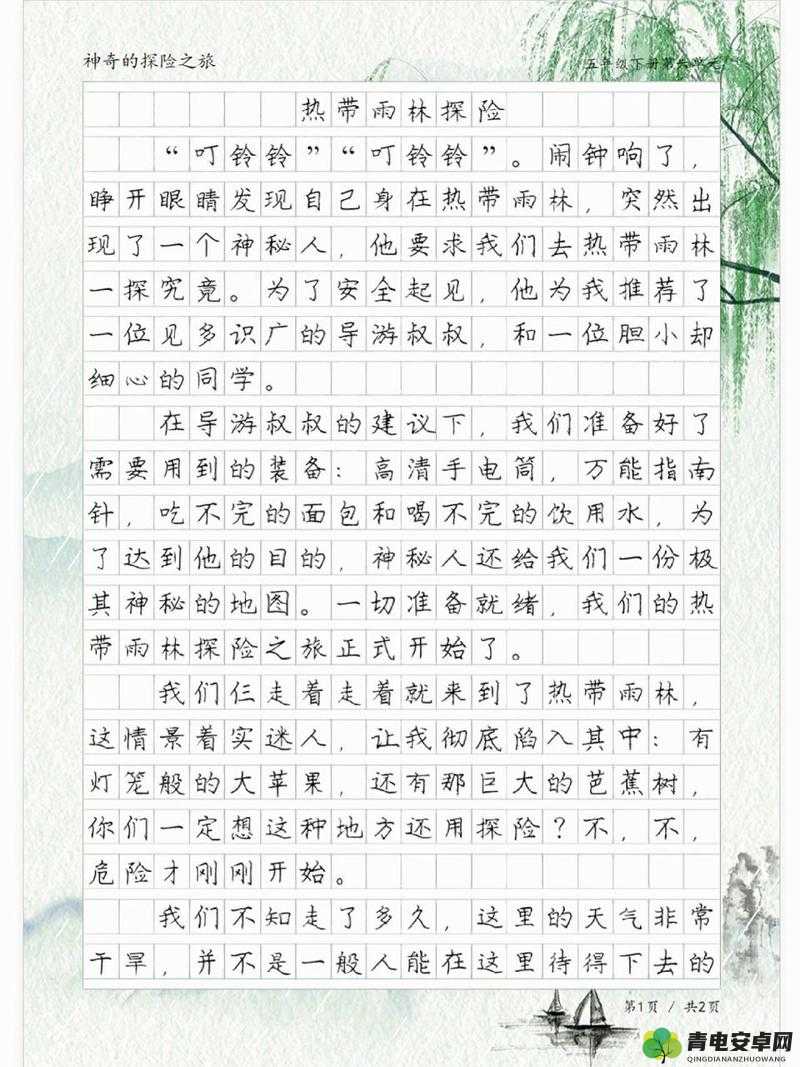 神奇的探险之旅
五年级下册第六单元
热带雨林探险
“叮铃铃”“叮铃铃”。闹钟响了，
睁开眼睛发现自己身在热带雨林，突然出
现了一个神秘人，他要求我们去热带雨林
一探究竟。为了安全起见，他为我推荐了
一位见多识广的导游叔叔，和一位胆小却
细心的同学。
在导游叔叔的建议下，我们准备好了
需要用到的装备：高清手电筒，万能指南
针，吃不完的面包和喝不完的饮用水，为
了达到他的目的，神秘人还给我们一份极
其神秘的地图。一切准备就绪，我们的热
带雨林探险之旅正式开始了。
我们仨走着走着就来到了热带雨林，
这情景着实迷人，让我彻底陷入其中：有
灯笼般的大苹果，还有那巨大的芭蕉树，
你们一定想这种地方还用探险？不，不，
危险才刚刚开始。
我们不知走了多久，这里的天气非常
干旱，并不是一般人能在这里待得下去的
第1页 / 共2页
青电安卓网
QINGDIANANZHUOWANG